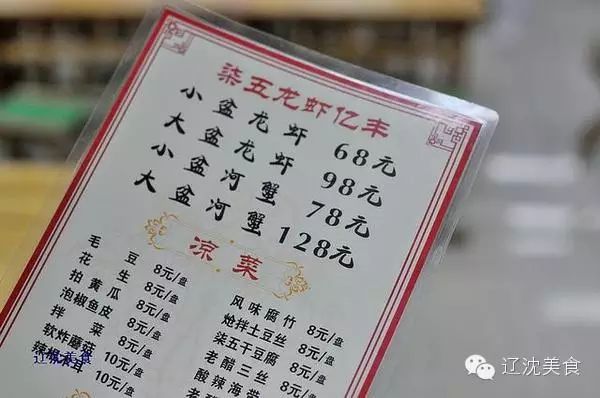 柒五龙虾亿丰
小盆龙虾 68元
大盆龙虾 98元
小盆河蟹 78元
大盆河蟹 128元
凉菜
毛豆 8元/盘
花生 8元/盘
拍黄瓜 8元/盘
泡椒鱼皮 8元/盘
拌菜 8元/盘
软炸蘑菇 10元/盘
10元/盘
风味腐竹 8元/盘
炝拌土豆丝 8元/盘
柒五干豆腐 8元/盘
老醋三丝 8元/盘
酸辣海带 8元/盘
老醋
辽沈美食
辽沈美食